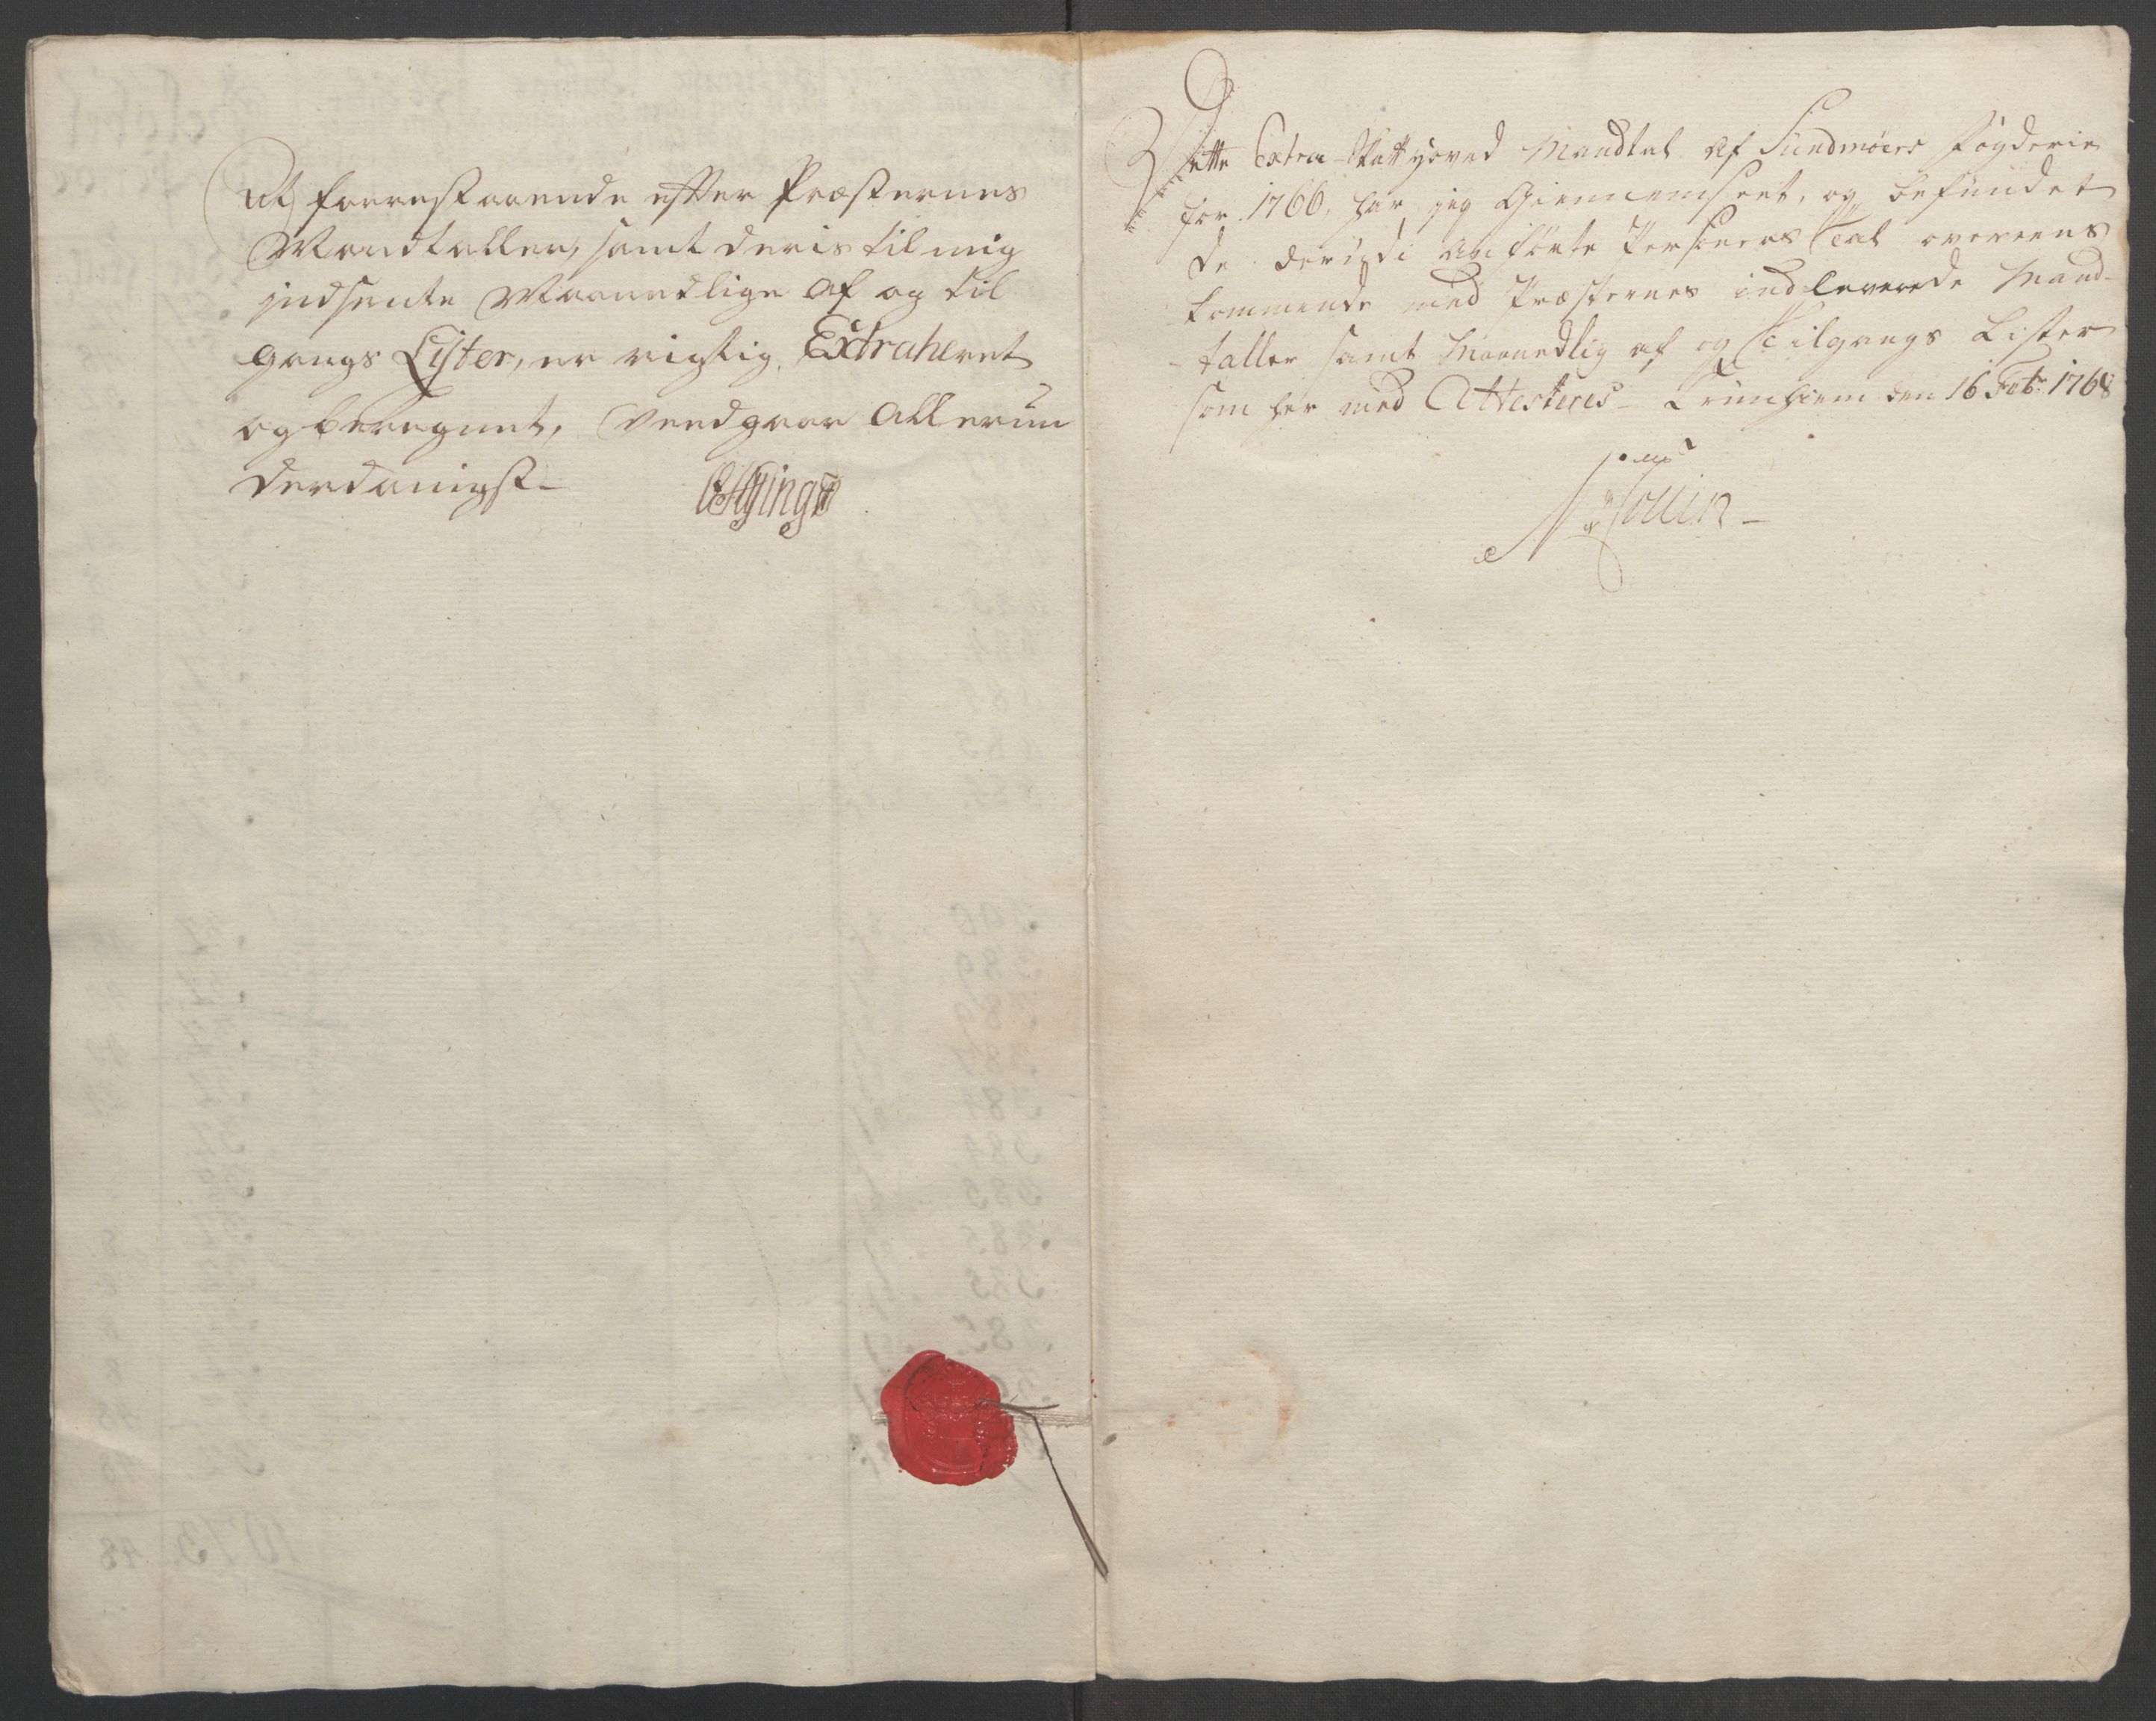 At forrestaaende efter Præsternes
Mandtaller, samt deris til mig
indsente Maanedlige af og til
gangs Lister, er rigtig Extraheret
og beregnet, Vendgaar Allerun
derdanigst_
Dette Extra-Skatt hoved Mandtal af Sundmøers fogderie
for 1766, har jeg Giennemseet, og befundet
de derudi anførte Persohners Tal overeens
kommende med Præsternes indleverede Mand-
-taller samt Maanedlig af og Tilgangs Lister
som her med Attesteres_ Trunhiem den 16 Febr: 1768
Collin_